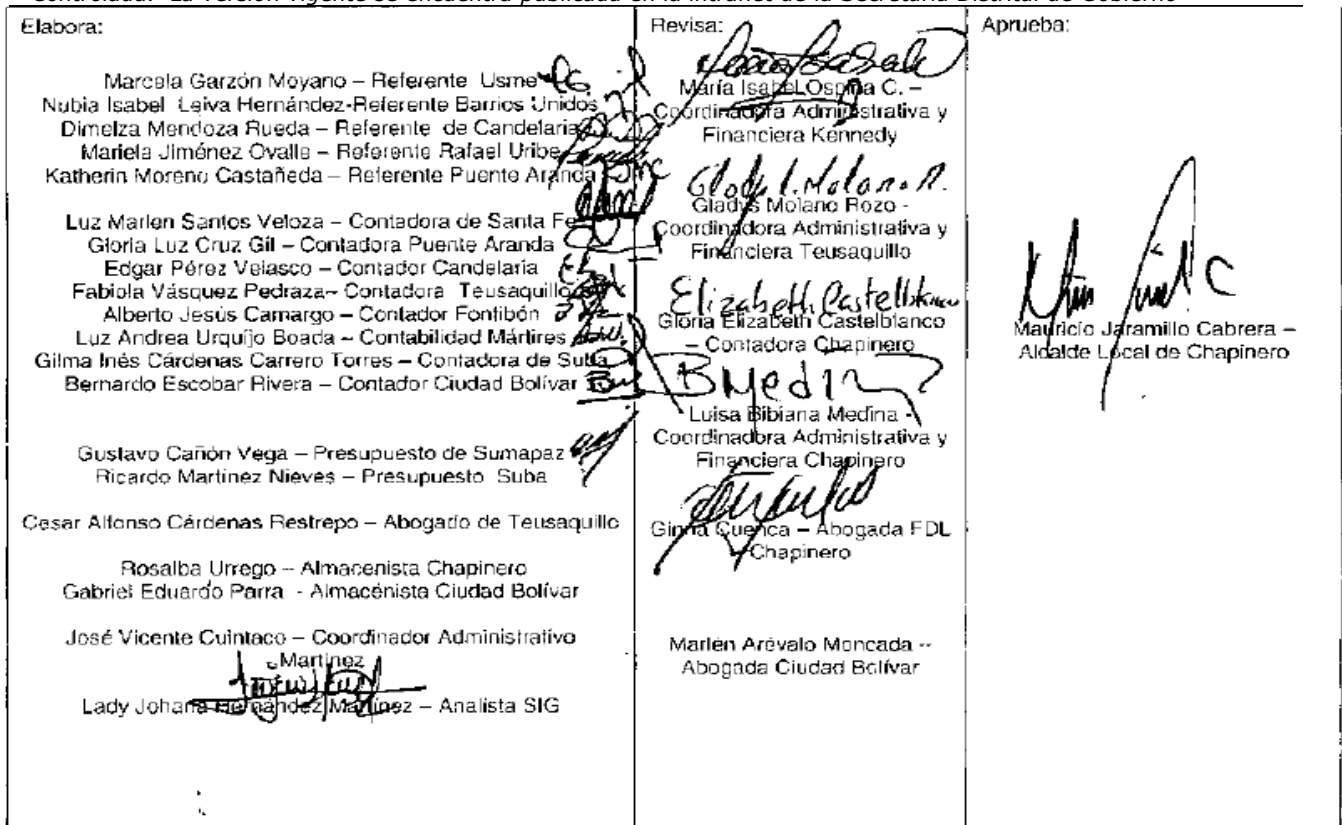 Controlada. La versión vigente se encuentra publicada en la intranet de la Secretaría Distrital de Gobierno
Elabora:
Marcela Garzón Moyano – Referente Usme
Nubia Isabel Leiva Hernández-Referente Barrios Unidos
Dimelza Mendoza Rueda – Referente de Candelaria
Mariela Jiménez Ovalle – Referente Rafael Uribe
Katherin Moreno Castañeda – Referente Puente Aranda
Luz Marlen Santos Veloza – Contadora de Santa Fe
Gloria Luz Cruz Gil – Contadora Puente Aranda
Edgar Pérez Velasco – Contador Candelaria
Fabiola Vásquez Pedraza– Contadora Teusaquillo
Alberto Jesús Camargo – Contador Fontibón
Luz Andrea Urquijo Boada – Contabilidad Mártires
Gilma Inés Cárdenas Carrero Torres – Contadora de Suba
Bernardo Escobar Rivera – Contador Ciudad Bolívar
Gustavo Cañón Vega – Presupuesto de Sumapaz
Ricardo Martínez Nieves – Presupuesto Suba
Cesar Alfonso Cárdenas Restrepo – Abogado de Teusaquillo
Rosalba Urrego – Almacenista Chapinero
Gabriel Eduardo Parra - Almacénista Ciudad Bolívar
José Vicente Cuintaco – Coordinador Administrativo
Martinez
Lady Johana Hernández Martínez – Analista SIG
Revisa:
María Isabel Ospina C. –
Coordinadora Administrativa y
Financiera Kennedy
Gladys I. Molano R.
Gladys Molano Rozo -
Coordinadora Administrativa y
Financiera Teusaquillo
Elizabeth Castelblanco
Gloria Elizabeth Castelblanco
– Contadora Chapinero
BMedina
Luisa Bibiana Medina -
Coordinadora Administrativa y
Financiera Chapinero
Ginna Cuenca – Abogada FDL
Chapinero
Marlén Arévalo Moncada --
Abogada Ciudad Bolívar
Aprueba:
Mauricio Jaramillo Cabrera –
Alcalde Local de Chapinero